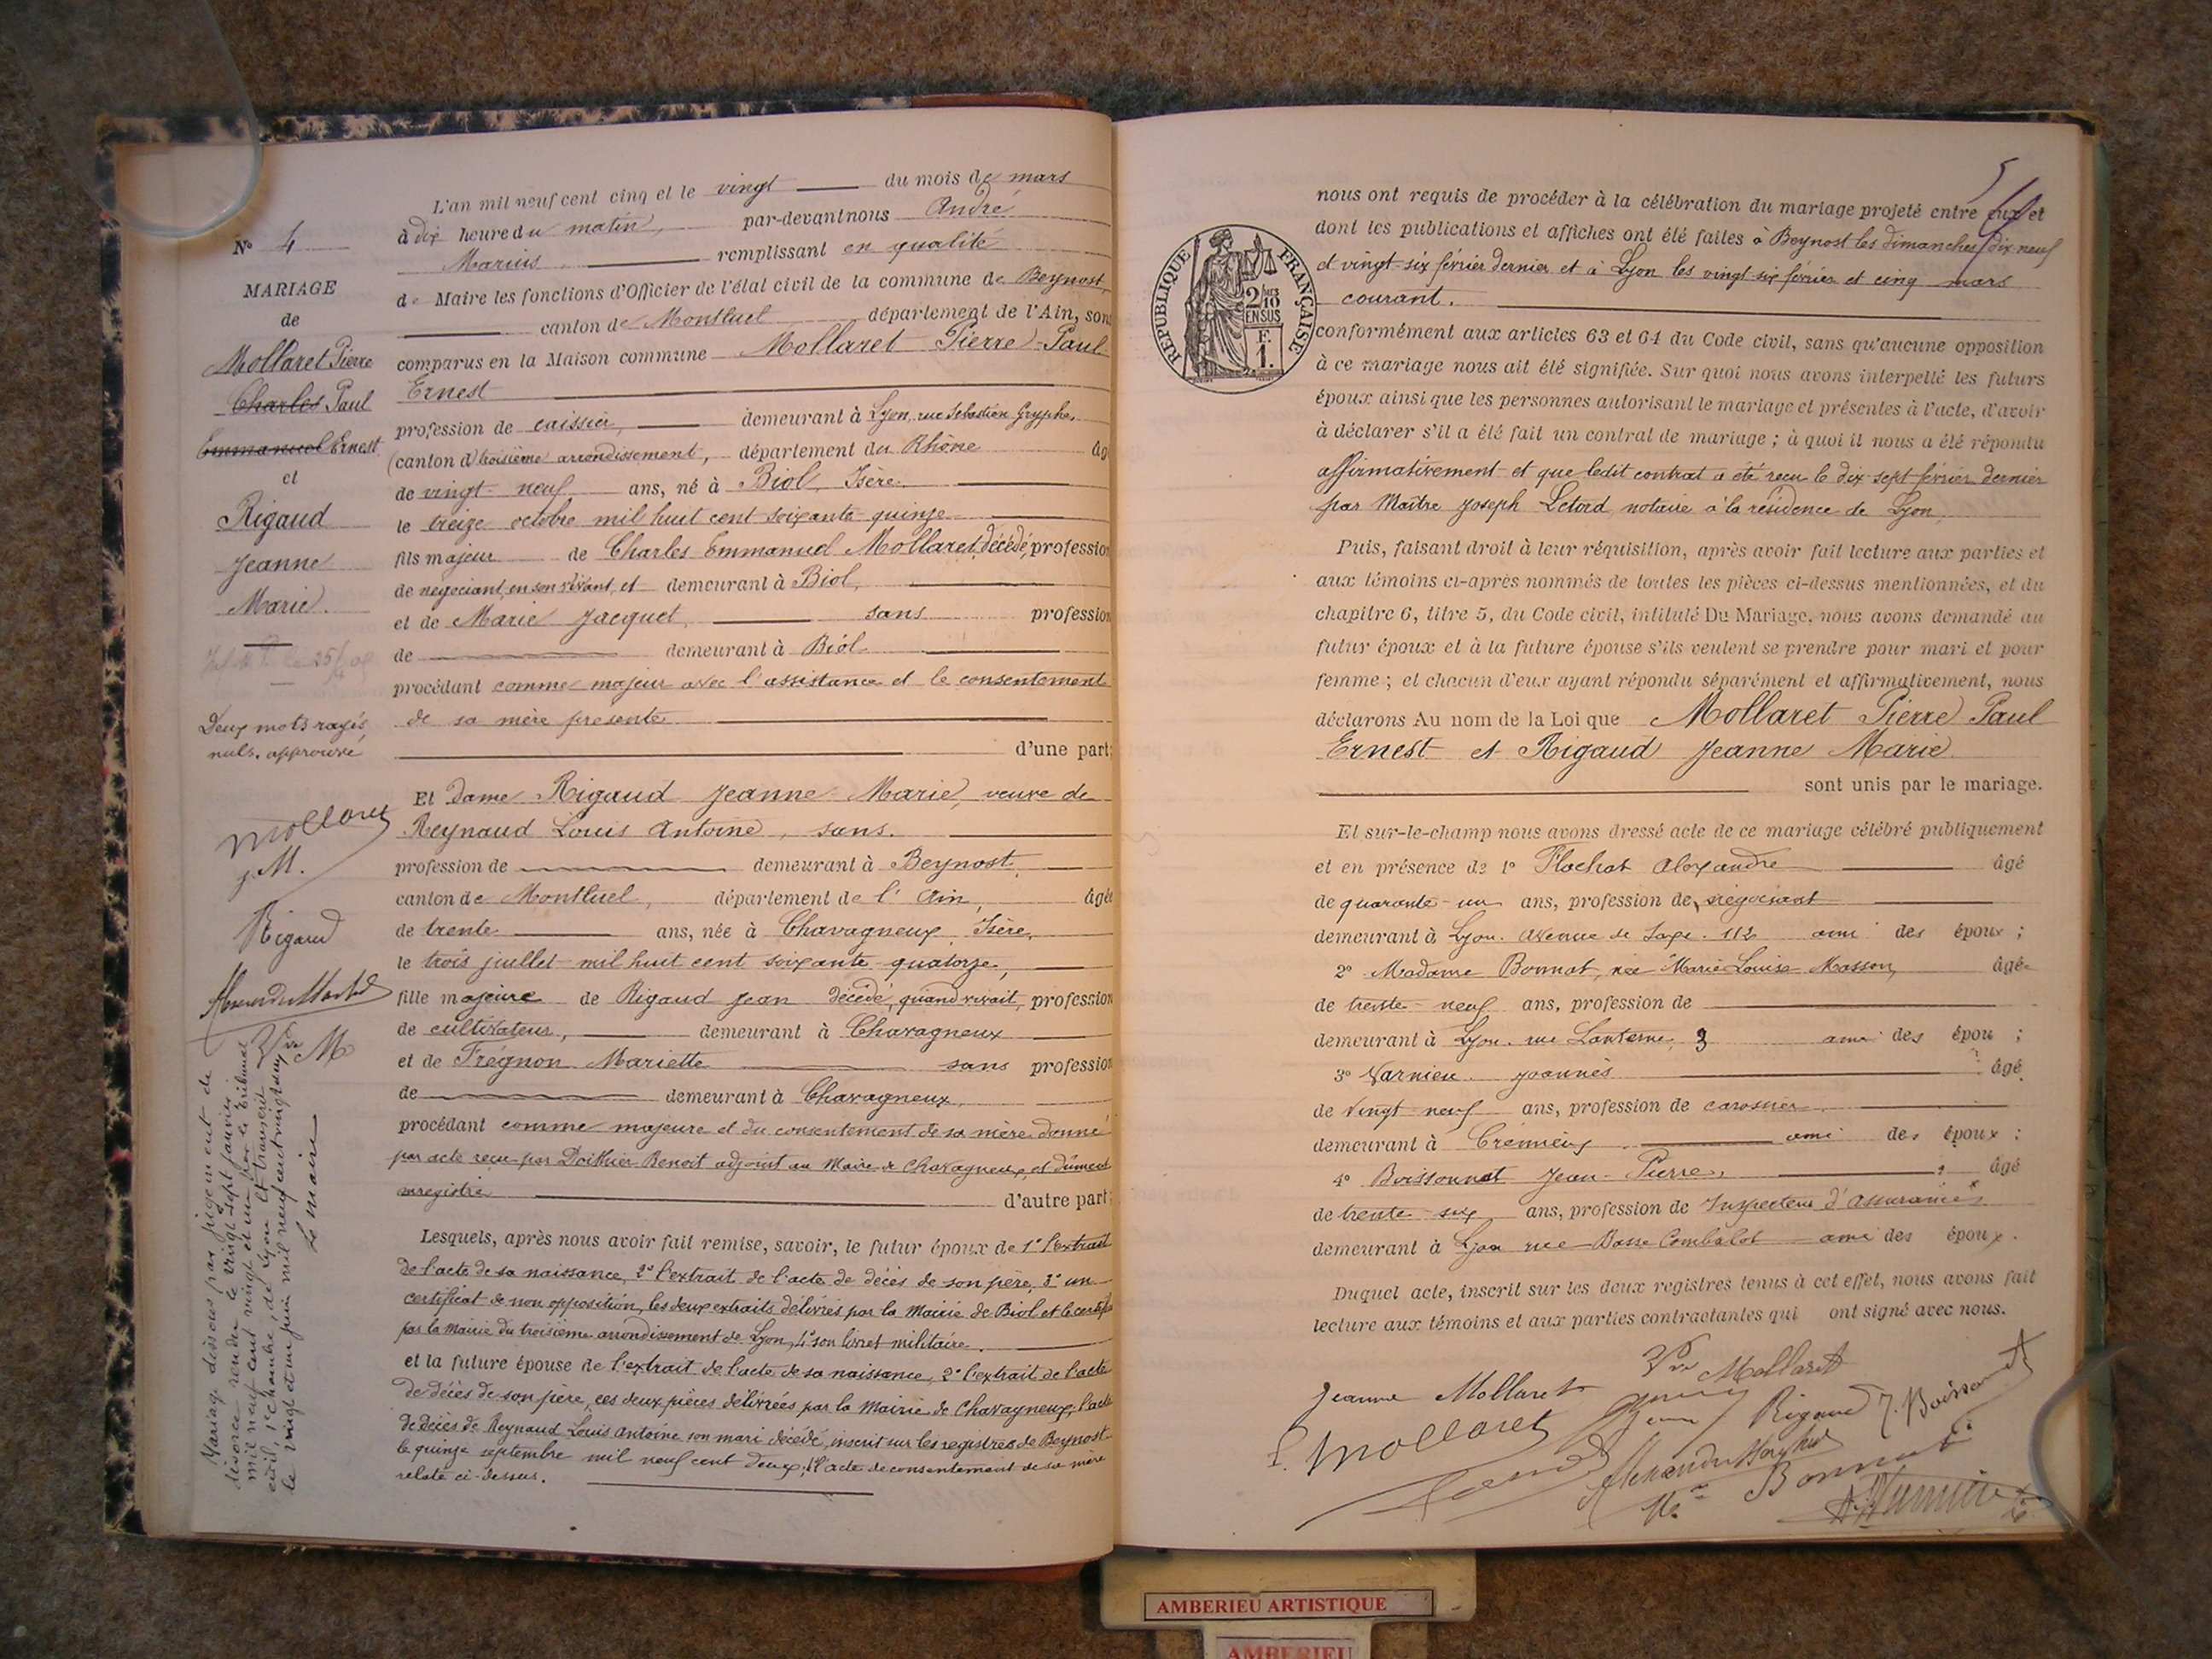 N° 4
MARIAGE
de
Mollaret Pierre
Charles Paul
Emmanuel Ernest
et
Rigaud
Jeanne
Marie.
Deux mots rayés
nuls. approuvé
Mollaret
J. M.
Rigaud
Vve M
Mariage dissous par jugement de
divorce rendu le vingt-sept janvier
mil neuf cent vingt et un par le tribunal
civil, 1e chambre, de Lyon et transcrit
le vingt et un juin mil neuf cent vingt deux
Le maire
L'an mil neuf cent cinq et le vingt du mois de mars
à dix heure du matin, par-devant nous André
Marius remplissant en qualité
de Maire les fonctions d'Officier de l'état civil de la commune de Beynost,
canton de Montluel département de l'Ain, sont
comparus en la Maison commune Mollaret Pierre Paul
Ernest
profession de caissier, demeurant à Lyon, rue Sébastien Gryphe,
(canton d troisième arrondissement, département du Rhône âg
de vingt-neuf ans, né à Biol, Isère.
le treize octobre mil huit cent soixante-quinze
fils majeur de Charles Emmanuel Mollaret, décédé, profession
de négociant, en son vivant, et demeurant à Biol,
et de Marie Jacquet, sans profession
de demeurant à Biol
procédant comme majeur avec l'assistance et le consentement
de sa mère présente
d'une part;
Et Dame Rigaud Jeanne Marie, veuve de
Reynaud Louis Antoine, sans.
profession de demeurant à Beynost,
canton de Montluel, département de l'Ain, âgée
de trente ans, née à Chavagneux, Isère,
le trois juillet mil huit cent soixante-quatorze,
fille majeure de Rigaud Jean décédé, quand vivait, profession
de cultivateur, demeurant à Chavagneux
et de Frégnon Mariette sans profession
de demeurant à Chavagneux,
procédant comme majeure et du consentement de sa mère donné
par acte reçu par Doithier Benoit adjoint au Maire de Chavagneux, et dûment
enregistré d'autre part;
Lesquels, après nous avoir fait remise, savoir, le futur époux de 1° l'extrait
de l'acte de sa naissance, 2° l'extrait de l'acte de décès de son père, 3° un
certificat de non opposition, les deux extraits délivrés par la Mairie de Biol et le certifi
par la Mairie du troisième arrondissement de Lyon, 4° son livret militaire.
et la future épouse de l'extrait de l'acte de sa naissance, 2° l'extrait de l'acte
de décès de son père, ces deux pièces délivrées par la Mairie de Chavagneux, l'acte
de décès de Reynaud Louis Antoine son mari décédé, inscrit sur les registres de Beynost
le quinze septembre mil neuf cent deux, l'acte de consentement de sa mère
relaté ci-dessus.
RÉPUBLIQUE FRANÇAISE
2/10 EN SUS
F. 1.
nous ont requis de procéder à la célébration du mariage projeté entre eux et
dont les publications et affiches ont été faites à Beynost les dimanches dix-neuf
et vingt-six février dernier et à Lyon les vingt-six février et cinq mars
courant.
conformément aux articles 63 et 64 du Code civil, sans qu'aucune opposition
à ce mariage nous ait été signifiée. Sur quoi nous avons interpellé les futurs
époux ainsi que les personnes autorisant le mariage et présentes à l'acte, d'avoir
à déclarer s'il a été fait un contrat de mariage ; à quoi il nous a été répondu
affirmativement et que ledit contrat a été reçu le dix-sept février dernier
par Maître Joseph Letord notaire à la résidence de Lyon
Puis, faisant droit à leur réquisition, après avoir fait lecture aux parties et
aux témoins ci-après nommés de toutes les pièces ci-dessus mentionnées, et du
chapitre 6, titre 5, du Code civil, intitulé Du Mariage, nous avons demandé au
futur époux et à la future épouse s'ils veulent se prendre pour mari et pour
femme ; et chacun d'eux ayant répondu séparément et affirmativement, nous
déclarons Au nom de la Loi que Mollaret Pierre Paul
Ernest et Rigaud Jeanne Marie
sont unis par le mariage.
Et sur-le-champ nous avons dressé acte de ce mariage célébré publiquement
et en présence de 1° Flachat Alexandre âgé
de quarante-un ans, profession de négociant
demeurant à Lyon. Avenue de Saxe. 112 ami des époux ;
2° Madame Bonnat, née Marie Louise Masson, âgée
de trente-neuf ans, profession de
demeurant à Lyon. rue Lanterne, 3 amie des épou ;
3° Varnieu Joannès âgé
de vingt-neuf ans, profession de carossier
demeurant à Crémieux ami des époux ;
4° Boissonnat Jean-Pierre, âgé
de trente-six ans, profession de Inspecteur d'assurances
demeurant à Lyon rue Basse Combalot ami des époux.
Duquel acte, inscrit sur les deux registres tenus à cet effet, nous avons fait
lecture aux témoins et aux parties contractantes qui ont signé avec nous.
Vve Mollaret
Jeanne Mollaret
P. Mollaret
Rigaud
J. Boissonnat
Bonnat
AMBERIEU ARTISTIQUE
AMBERIEU